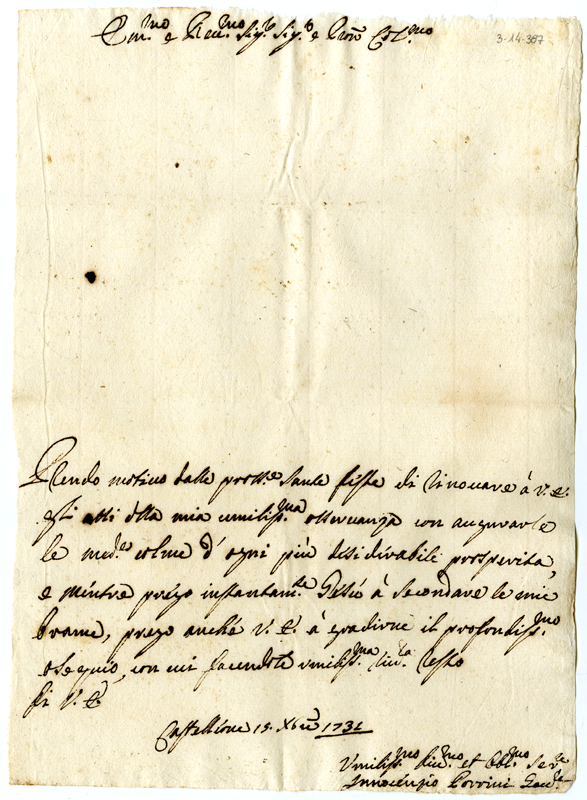 Em.mo e Reu.mo Sig.r Sig.r e Pron Col.mo
3-14-387
Prendo motivo dalle pross.e sante feste di rinouare à V. E.
gli atti della mia umiliss.ma osseruanza con augurarle
le med.e colme d'ogni più desiderabile prosperita,
e mentre prego instantem.te Giesù à secondare le mie
brame, prego anche V. E. à gradirne il profondiss.mo
ossequio, con cui facendole umiliss.ma riu.za resto
di V. E.
Castellione 15. Xbre 1731
Vmiliss.mo Diu.mo et Obl.mo Ser.e
Innocenzio Porrini